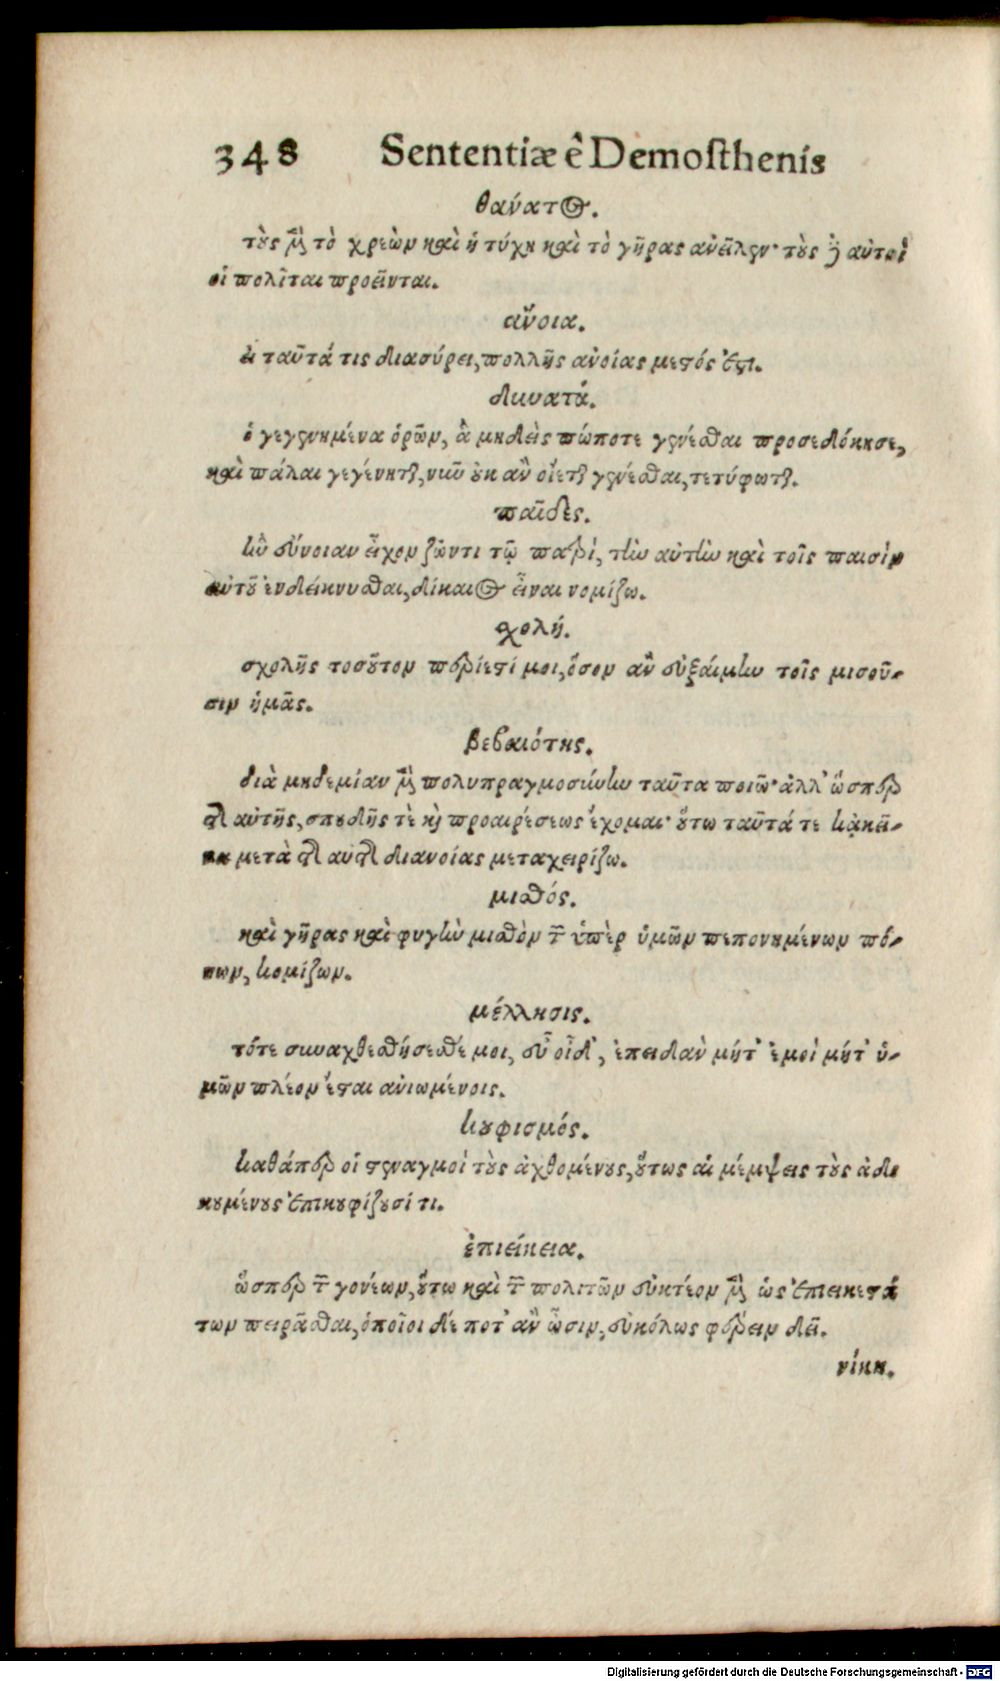 348 Sententiæ ê Demosthenis
θάνατος.
τοὺς μὲν τὸ χρεὼν καὶ ἡ τύχη καὶ τὸ γῆρας ἀνεῖλεν· τοὺς δὲ αὐτοὶ
οἱ πολῖται προεῖνται.
ἄνοια.
εἰ ταῦτά τις διασύρει, πολλῆς ἀνοίας μεστός ἐστι.
δυνατά.
ὁ γεγενημένα ὁρῶν, ἃ μηδεὶς πώποτε γενέσθαι προσεδόκησε,
καὶ πάλαι γεγένηται, νῦν οὐκ ἂν οἴεται γενέσθαι, τετύφωται.
παῖδες.
ἣν εὔνοιαν εἶχον ζῶντι τῷ πατρὶ, τὴν αὐτὴν καὶ τοῖς παισὶν
αὐτοῦ ἐνδείκνυσθαι, δίκαιος εἶναι νομίζω.
σχολή.
σχολῆς τοσοῦτον περίεστί μοι, ὅσον ἂν εὐξαίμην τοῖς μισοῦ-
σιν ἡμᾶς.
βεβαιότης.
διὰ μηδεμίαν μὲν πολυπραγμοσύνην ταῦτα ποιῶ· ἀλλ' ὥσπερ
τῆς αὐτῆς, σπουδῆς τὲ καὶ προαιρέσεως ἔχομαι· οὕτω ταῦτά τε κἀκεῖ-
να μετὰ τῆς αὐτῆς διανοίας μεταχειρίζω.
μισθός.
καὶ γῆρας καὶ φυγὴν μισθὸν τῶν ὑπὲρ ὑμῶν πεπονημένων πό-
νων, κομίζων.
μέλλησις.
τότε συναχθεσθήσεσθέ μοι, εὖ οἶδ', ἐπειδὰν μήτ' ἐμοὶ μήτ' ὑ-
μῶν πλέον ἔσται ἀνιωμένοις.
κουφισμός.
καθάπερ οἱ στεναγμοὶ τοὺς ἀχθομένους, οὕτως αἱ μέμψεις τοὺς ἀδι
κουμένους ἐπικουφίζουσί τι.
ἐπιείκεια.
ὥσπερ τῶν γονέων, οὕτω καὶ τῶν πολιτῶν εὐκτέον μὲν ὡς ἐπιεικεστά
των πειρᾶσθαι, ὁποῖοι δέ ποτ' ἂν ὦσιν, εὐκόλως φέρειν δεῖ.
νίκη.
Digitalisierung gefördert durch die Deutsche Forschungsgemeinschaft - DFG